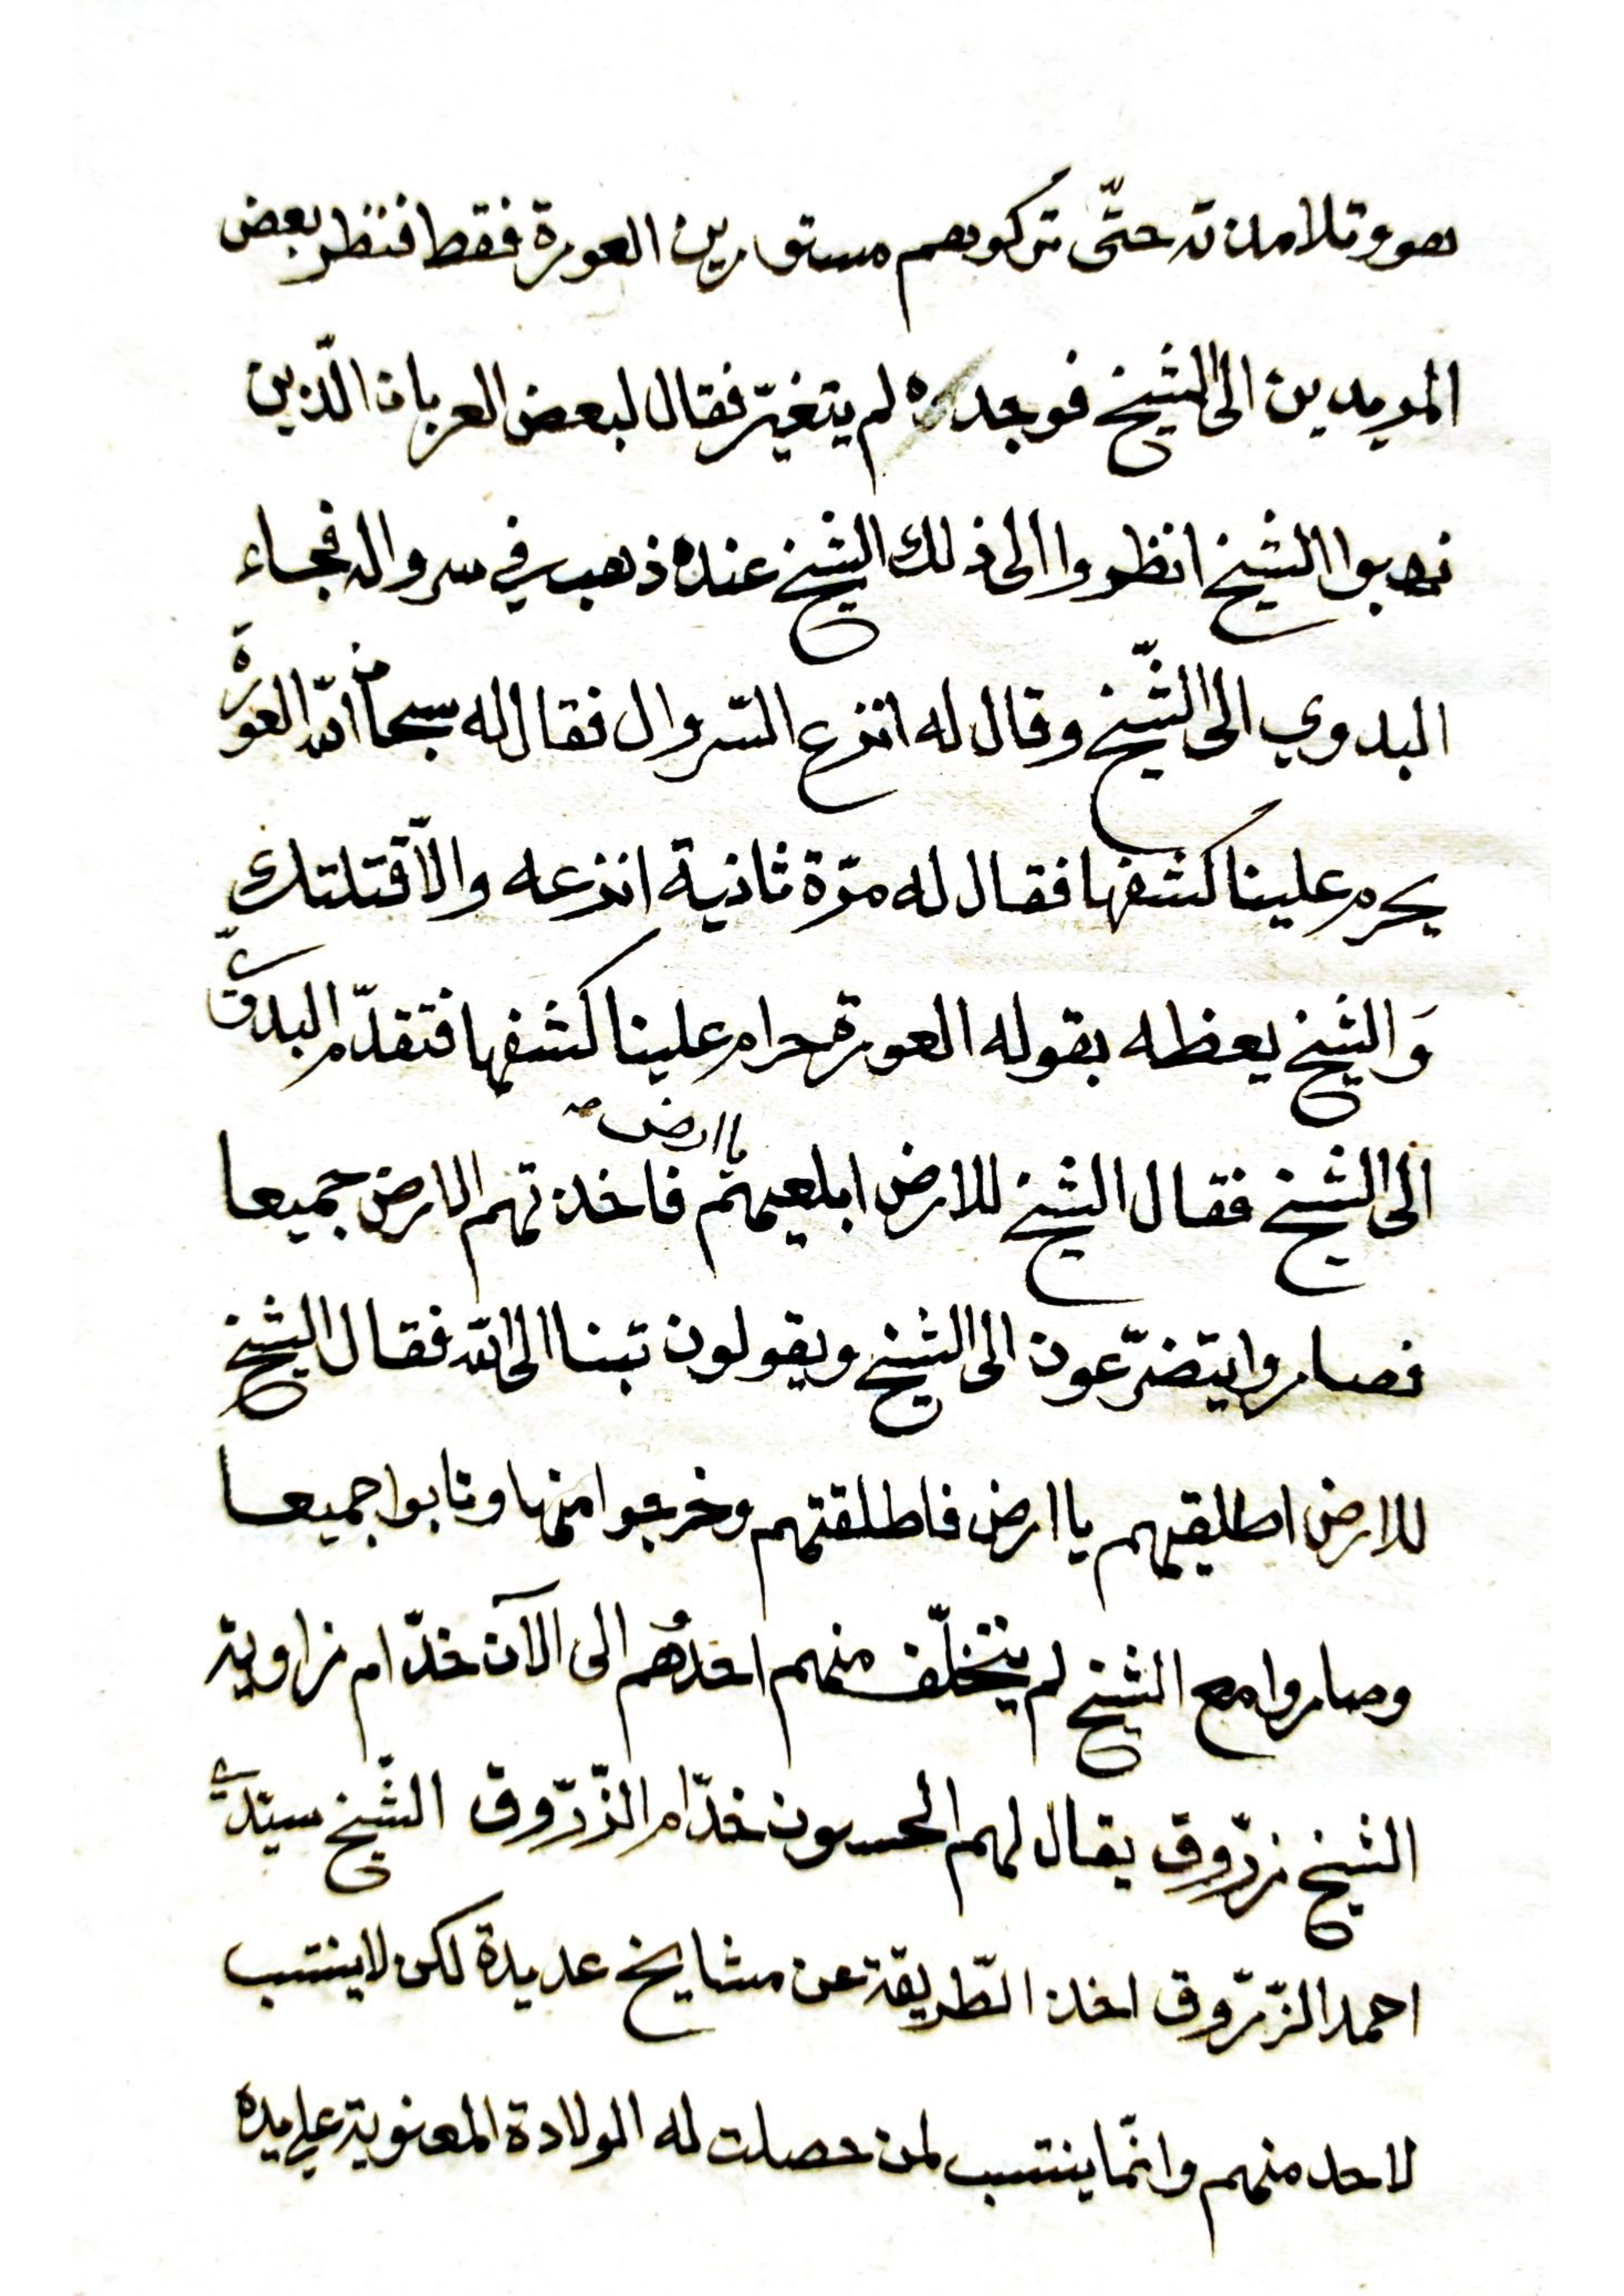 هو وتلامذته حتّى تركوهم مستورين العورة فقط فنظر بعض
المريدين الى الشيخ فوجده لم يتغيّر فقال لبعض العربان الّذين
نهبوا الشيخ انظروا الى ذلك الشيخ عنده ذهب في سرواله فجاء
البدوي الى الشّيخ وقال له انزع السّروال فقال له سبحان الله العورة
يحرم علينا كشفها فقال له مرّة ثانية انزعه والّا قتلتك
وَالشيخ يعظه بقوله العورة حرام علينا كشفها فتقدّم البدويّ
الى الشيخ فقال الشيخ للارض ابلعيهم يا ارض فاخذتهم الارض جميعا
فصاروا يتضرّعون الى الشيخ ويقولون تبنا الى الله فقال الشيخ
للارض اطلقيهم يا ارض فاطلقتهم وخرجوا منها وتابوا جميعا
وصاروا مع الشيخ لم يتخلّف منهم احدُهم الى الآن خدّام زاوية
الشيخ زرّوق يقال لهم الحسون خدّام الزّرّوق الشّيخ سيّدي
احمد الزّرّوق اخذ الطّريقة عن مشايخ عديدة لكن لا ينتسب
لاحد منهم وانّما ينتسب لمن حصلت له الولادة المعنوية على يده